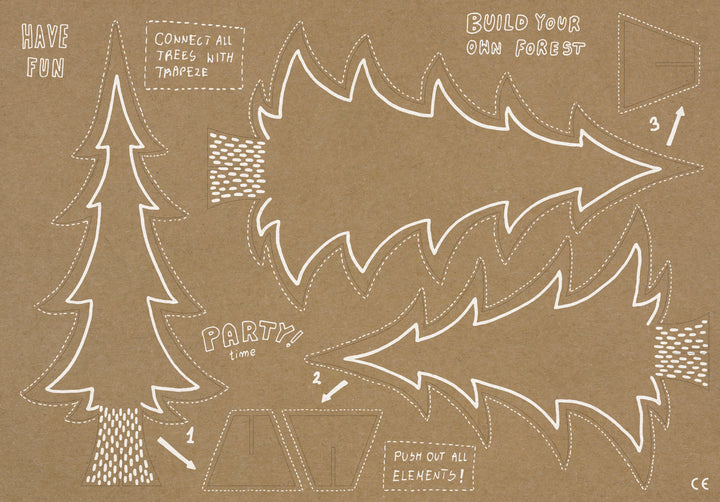 HAVE
FUN
CONNECT ALL
TREES WITH
TRAPEZE
BUILD YOUR
OWN FOREST
3
PARTY!
time
1
2
PUSH OUT ALL
ELEMENTS!
CE